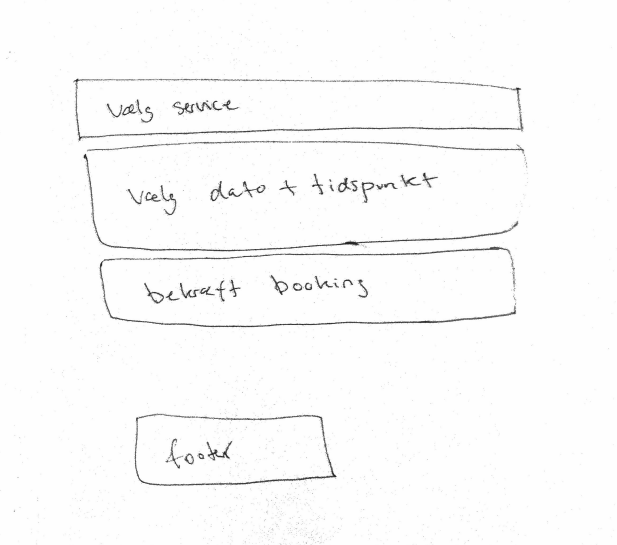 Vælg service
Vælg dato + tidspunkt
bekræft booking
footer